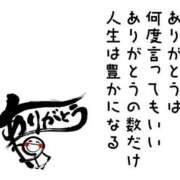 ありがとうは
何度言ってもいい
ありがとうの数だけ
人生は豊かになる
ありがとう